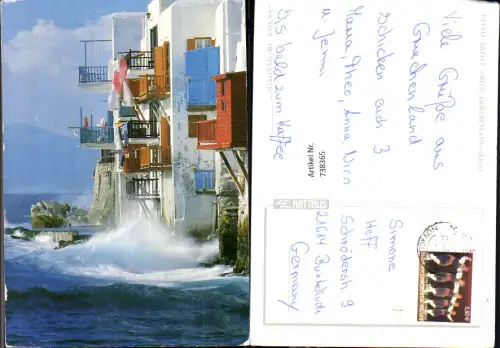 Viele Grüße aus
Griechenland
schicken euch 3
Mama, Theo, Anna, Nick
u. Jenni
bis bald zum Kaffee
Artikel Nr.
738365
HAITALIS
Simone
Hoff
Schröderstr. 9
21614 Buxtehude
Germany